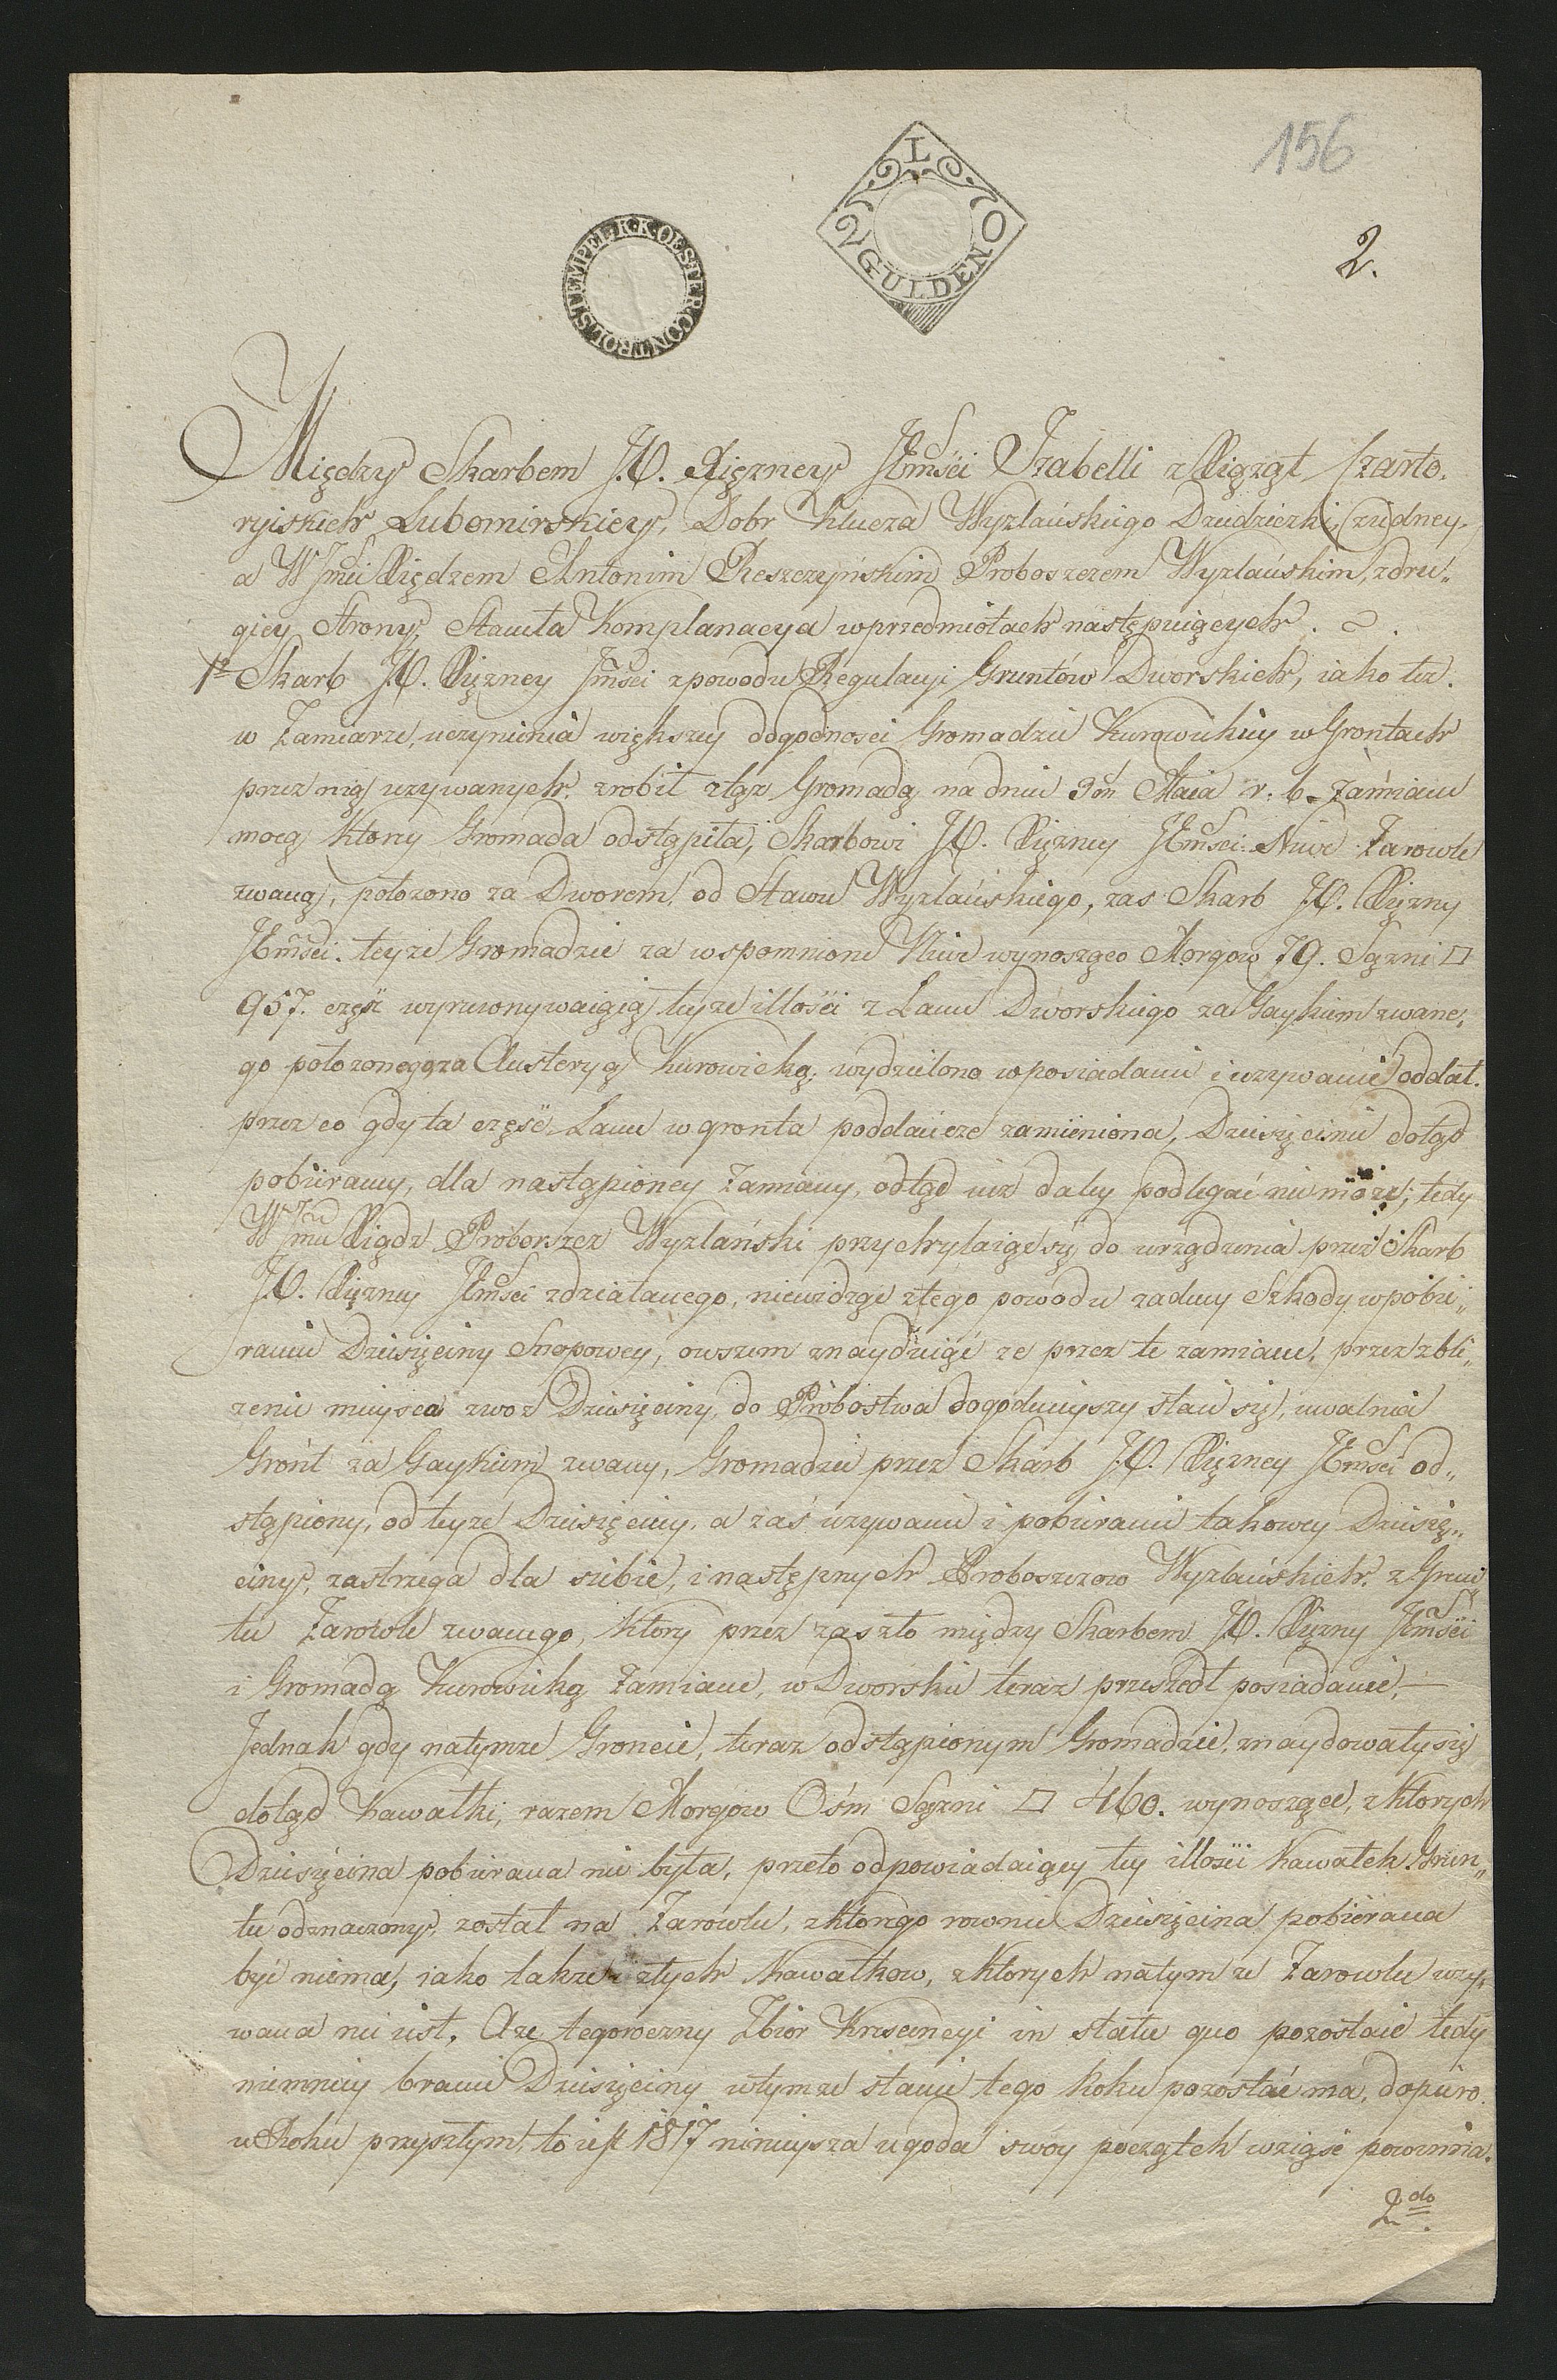 156
2.
L
2 O
GULDEN
K.K.OESTER.CONTROLSTEMPEL
Między Skarbem J.O. Xiężney JEmści Izabelli z Xiążąt Czarto„
ryiskich Lubomirskiey, Dobr Klucza Wyzlańskiego Dziedziczki, z iedney,
a W Jmci Xiędzem Antonim Reszczyńskim Proboszczem Wyzlańskim, z dru„
giey Strony, Stanęła Komplanacya w przedmiotach następuiących.
1o Skarb J.O. Xiężney Jmści z powodu Regulacyi Gruntów Dworskich, iako też
w Zamiarze, uczynienia większey dogodności Gromadzie Kurowickiey w Grontach
przez nią uzywanych, zrobił z tąż Gromadą na dniu 3ём Maia r. b. Zamianę
mocą ktorey Gromada odstąpiła, Skarbowi J.O. Xiężney JEmści Niwę Zarowle
zwaną, położoną za Dworem od Stawu Wyzlańskiego, zas Skarb J.O. Xiężny
JEmści. teyze Gromadzie za wspomnioną Niwę wynoszącą Morgow 79. Sążni □
957. część wyrownywaiącą teyze illości z Łanu Dworskiego za Gaykiem zwane„
go położonego za Austeryą Kurowicką, wydzieloną w posiadanie i uzywanie oddał.
przez co gdy ta część Łanu w gronta poddańcze zamieniona, Dziesięcinie dotąd
pobieraney, dla nastąpioney Zamiany, odtąd iuż daley podlegać nie może; tedy
W Jmć Xiądz Proboszcz Wyzlański przychylaiąc się do urządzenia przez Skarb
J.O. Xiężney JEmści zdziałanego, niewidząc z tego powodu zadney Szkody w pobie„
raniu Dziesięciny Snopowey, owszem znayduiąc ze przez te zamianę, przez zbli„
zenie mieysca zwoz Dziesięciny do Probostwa dogodnieyszy staie się, uwalnia
Gront za Gaykiem zwany, Gromadzie przez Skarb J.O. Xiężney JEmści od„
stąpiony, od teyze Dziesięciny, a zaś uzywanie i pobieranie takowey Dziesię„
ciny, zastrzega dla siebie, i następnych Proboszczow Wyzlańskich, z Grun„
tu Zarowle zwanego, ktory przez zaszłą między Skarbem J.O. Xiężny JEmści
i Gromadą Kurowicką Zamianę, w Dworskie teraz przeszedł posiadanie, —
Jednak gdy na tymze Groncie, teraz odstąpionym Gromadzie, znaydowały się
dotąd Kawałki, razem Morgow Ośm Sążni □ 460. wynoszące, z ktorych
Dziesięcina pobierana nie była, przeto odpowiadaiący tey illości Kawałek Grun„
tu odznaczony, został na Zarowlu, z ktorego rownie Dziesięcina pobierana
być niema, iako takze z tych Kawałkow, z ktorych na tymze Zarowlu uzy„
wana nie iest. A ze tegoroczny Zbiór Krescencyi in statu quo pozostaie tedy
niemniey branie Dziesięciny w tymze stanie tego Roku pozostać ma, dopiero
w Roku przyszłym, to iest 1817 ninieysza ugoda swoy początek wziąść powinna.
2do